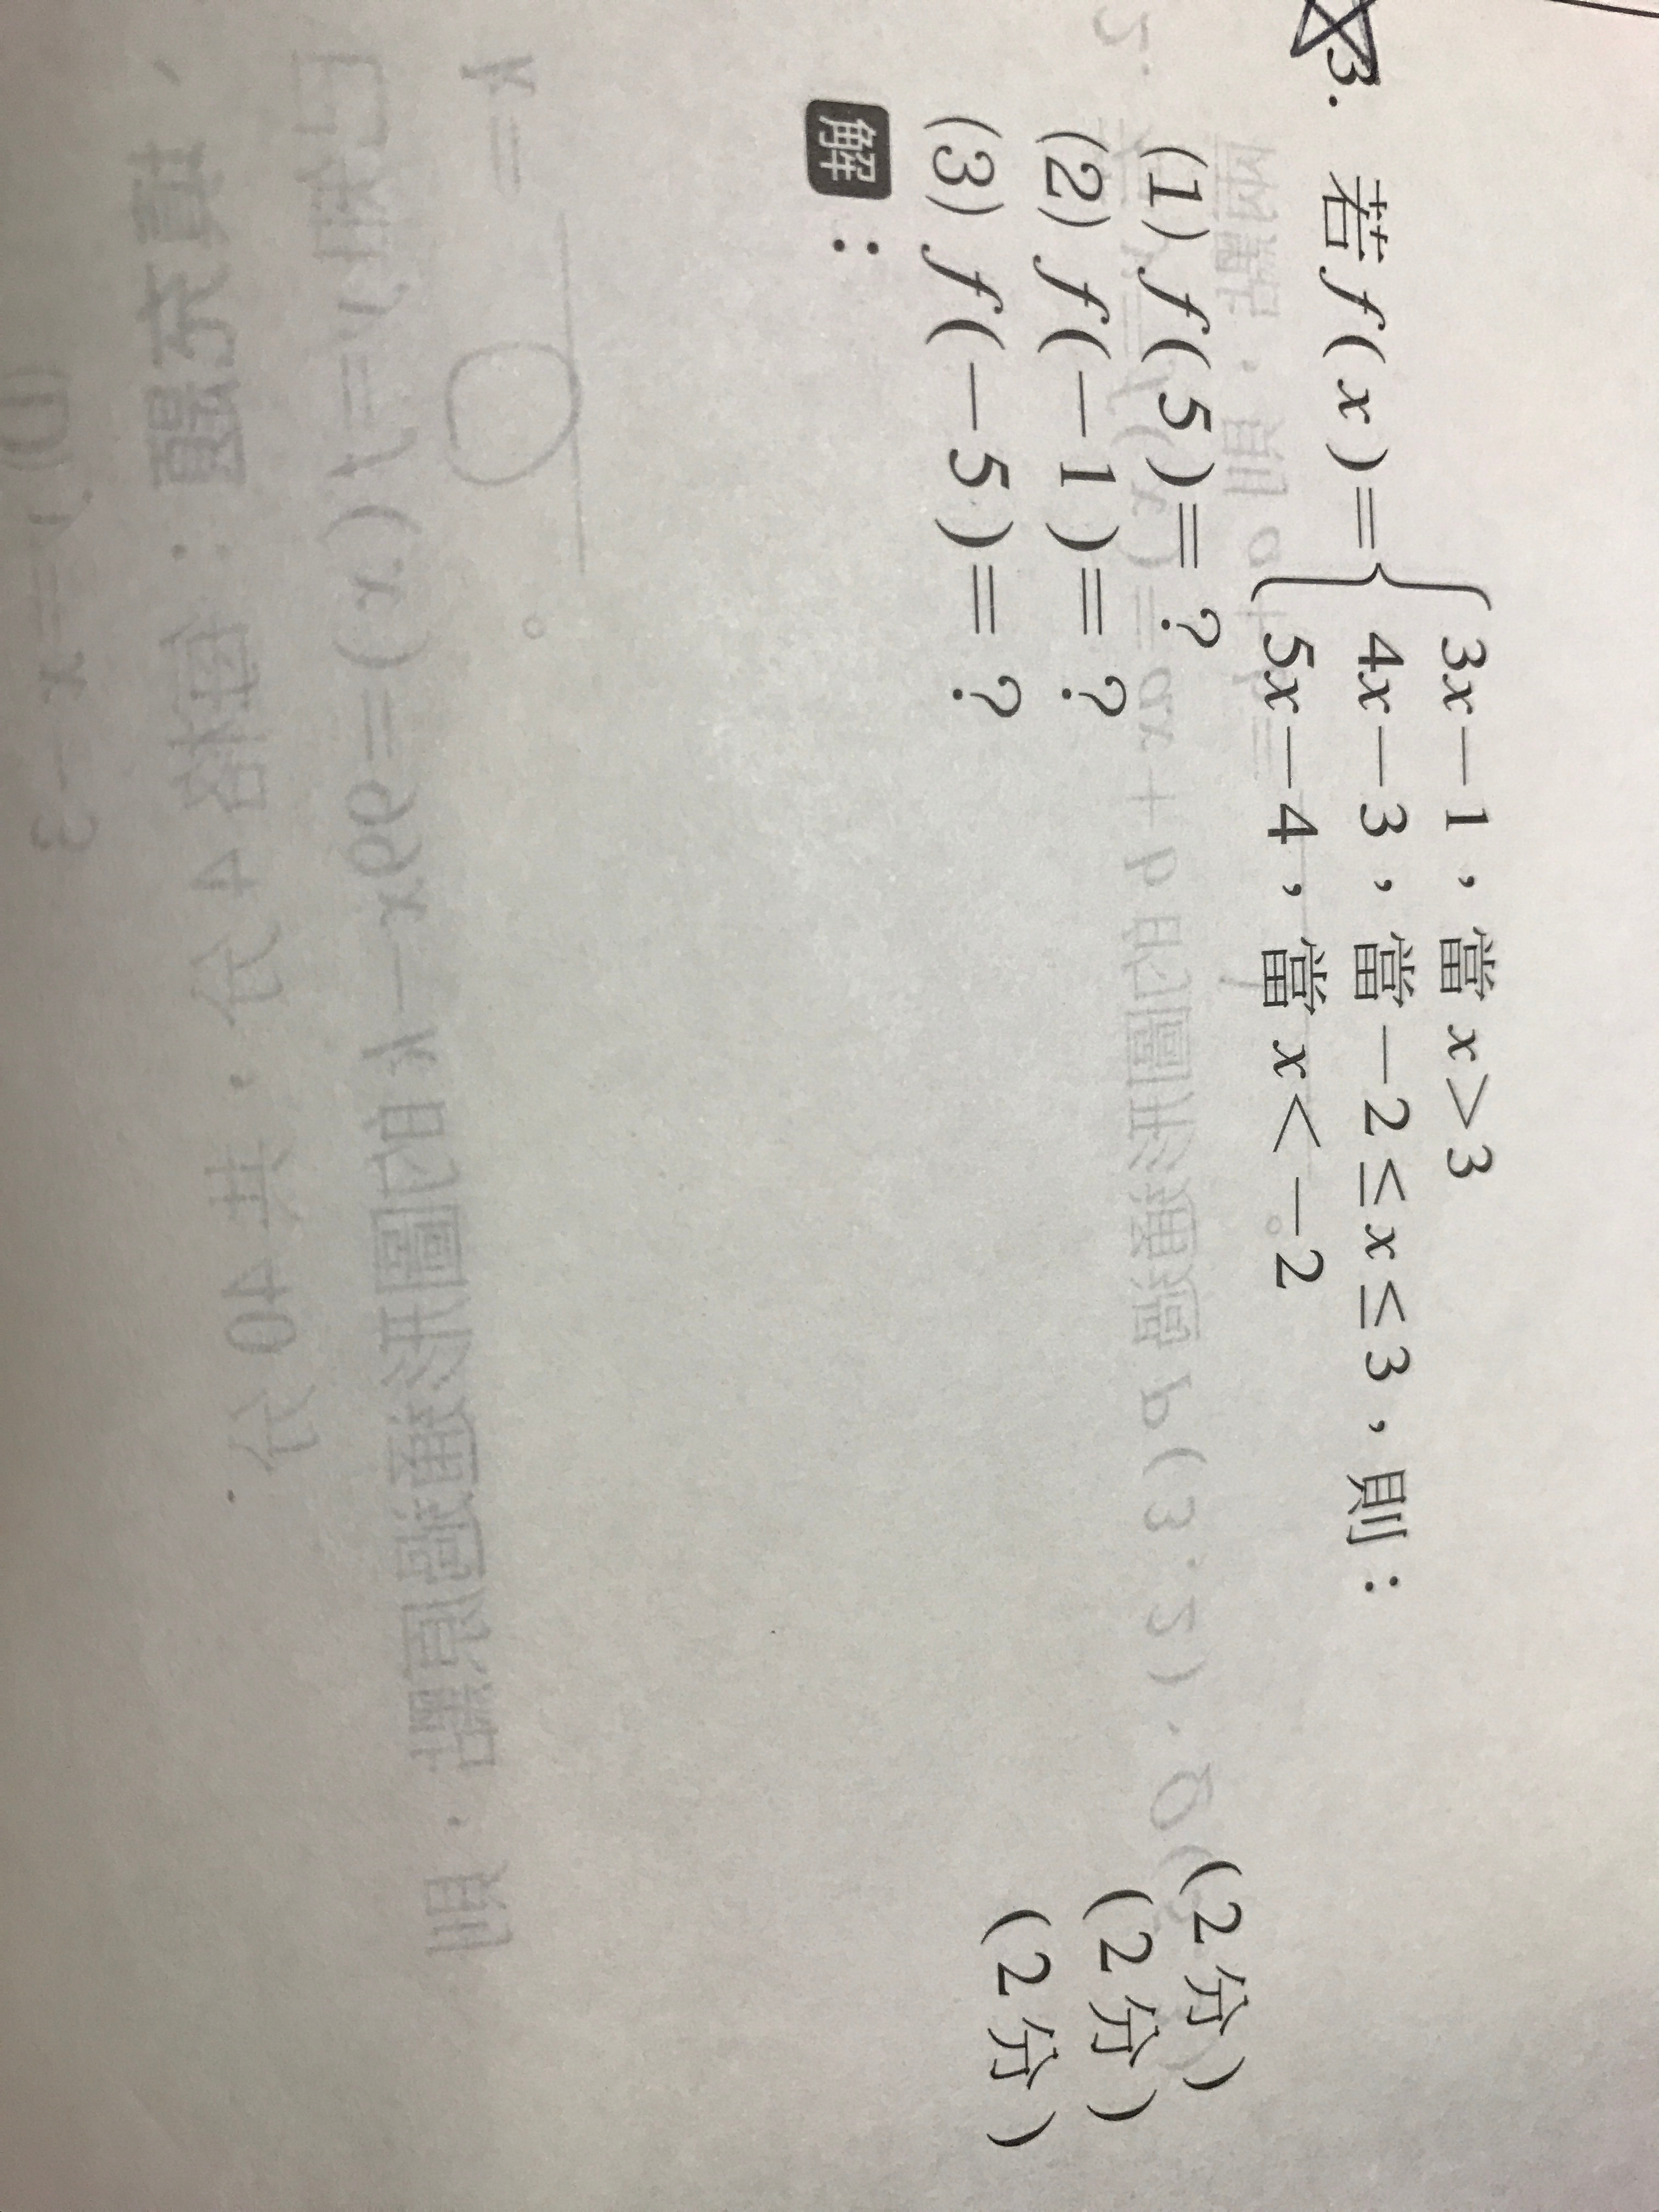 3. 若 f(x)={ 3x-1,當 x>3
4x-3,當 -2≤x≤3,則:
5x-4,當 x<-2
(1) f(5)=? (2分)
(2) f(-1)=? (2分)
(3) f(-5)=? (2分)
解: